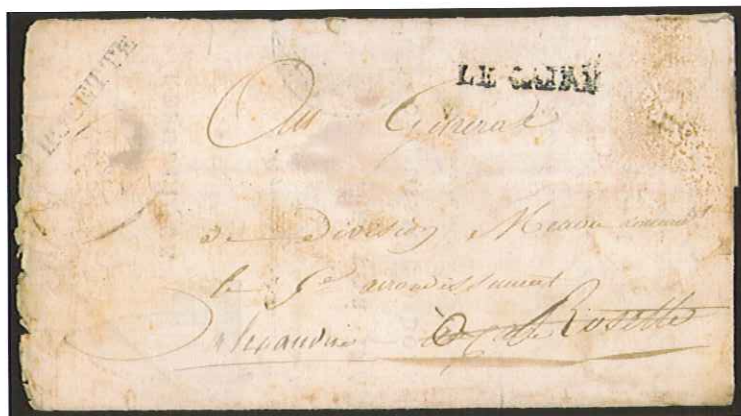 LE CAIRE
Au Général
de Division Menou
le 5e arrondissement
alexandrie à Rosette